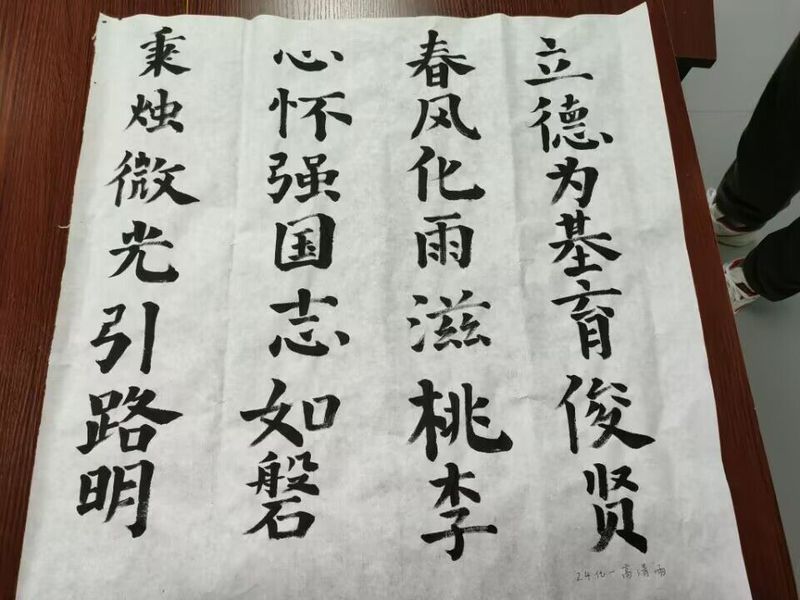 立德为基育俊贤
春风化雨滋桃李
心怀强国志如磐
秉烛微光引路明
24化一高清雨